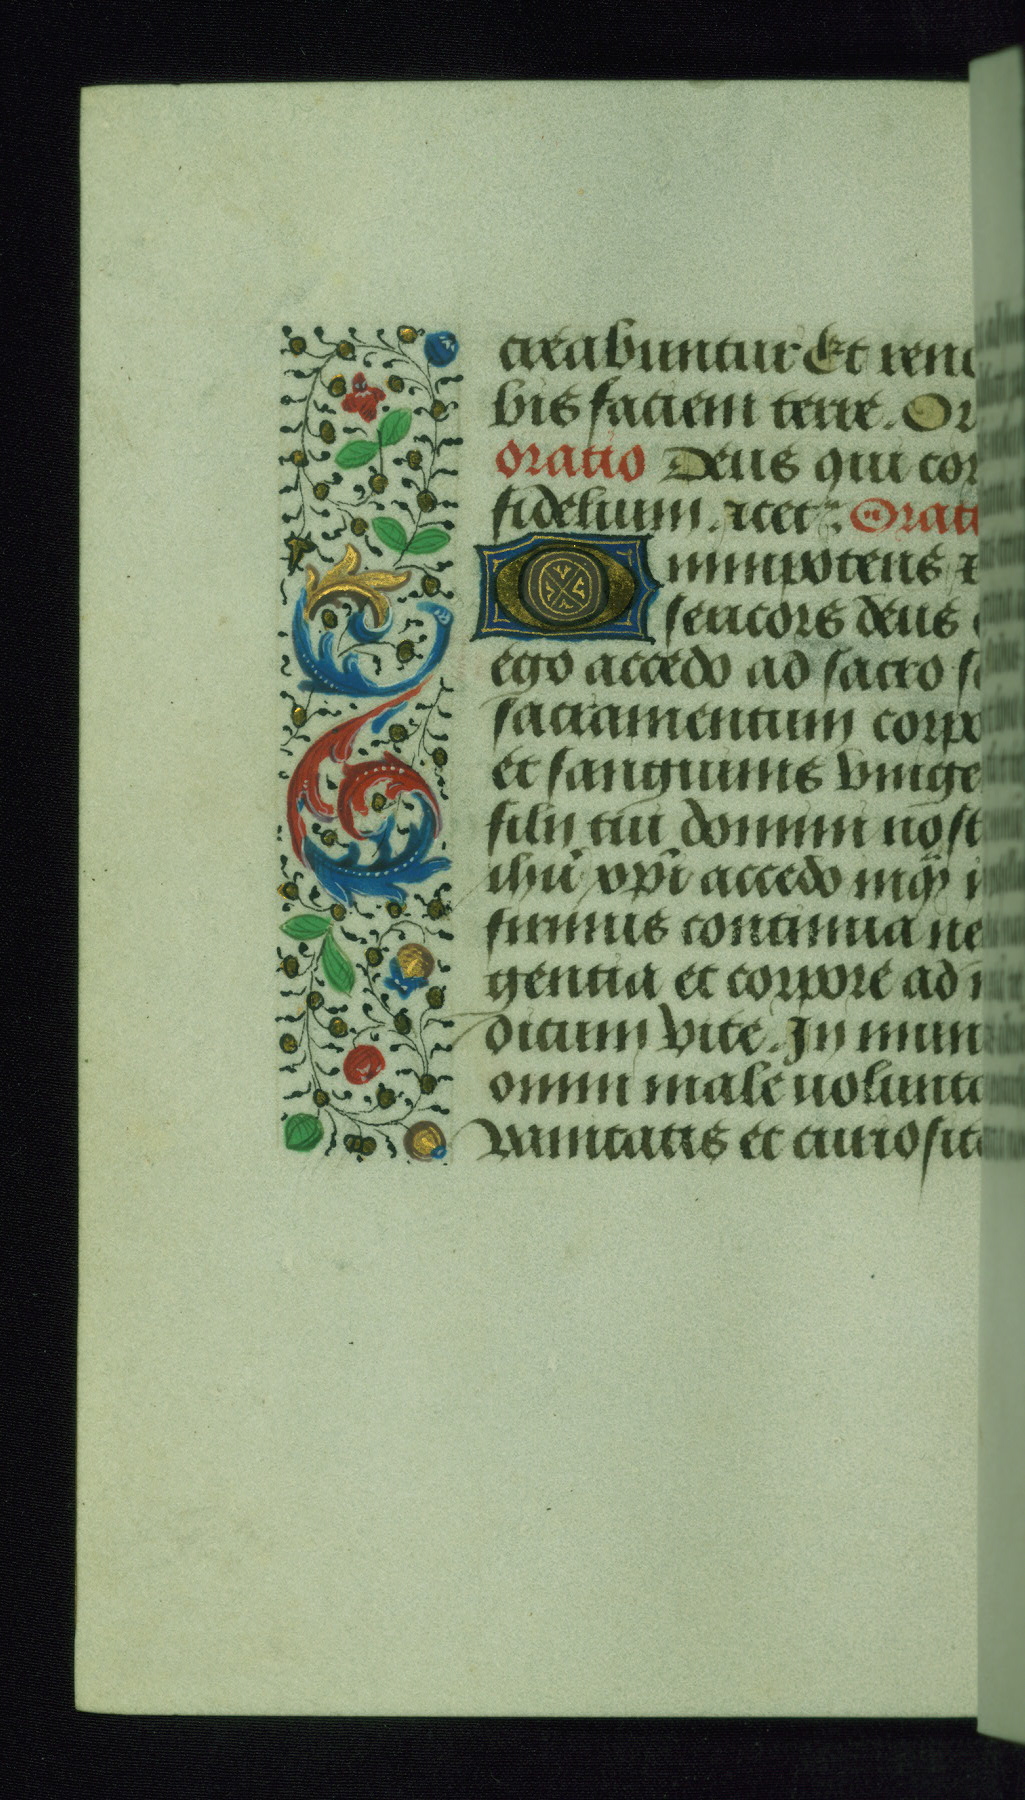 creabuntur Et reno
bis faciem terre. Or
oratio Deus qui cor
fidelium. et cet. Orati
Omnipotens et
sericors deus
ego accedo ad sacro s
sacramentum corpo
et sanguinis vnige
filij tui domini nost
ihu xpi accedo inqm
firmus continua ne
gentia et corpore ad
dicum vite. In mun
omni male uolunta
vanitatis et curiosita